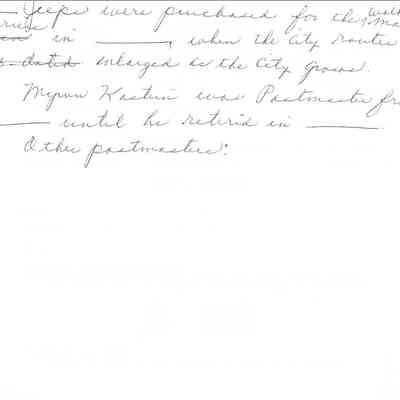 Jeeps were purchased for the walk
in ____, when the City routes
enlarged as the City grows.
Myron Kastein was Postmaster fr
____ until he retired in ____
Other postmasters: